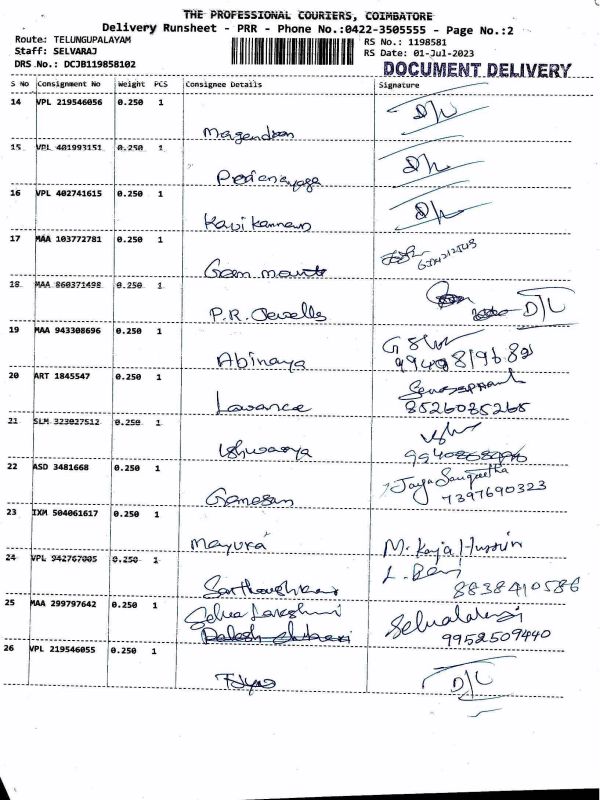 THE PROFESSIONAL COURIERS, COIMBATORE
Delivery Runsheet - PRR - Phone No.:0422-3505555 - Page No.:2
Route: TELUNGUPALAYAM
RS No.: 1198581
Staff: SELVARAJ
RS Date: 01-Jul-2023
DRS No.: DCJB119858102
DOCUMENT DELIVERY
S No Consignment No Weight PCS Consignee Details Signature
14 VPL 219546056 0.250 1
D/L
15 VPL 401993151 0.250 1
D/L
16 VPL 402741615 0.250 1
D/L
Kavi Kannan
17 MAA 103772781 0.250 1
18 MAA 860371498 0.250 1
P.R. Jewells
D/L
19 MAA 943308696 0.250 1
Abinaya
20 ART 1845547 0.250 1
Lavance
8526085265
21 SLM 323027512 0.250 1
Ishwarya
22 ASD 3481668 0.250 1
Ganesan
Jaya Sangeetha
7397690323
23 IXM 504061617 0.250 1
Mayura
M. Kaja Hussin
24 VPL 942767005 0.250 1
8838410586
25 MAA 299797642 0.250 1
Selva Lakshmi
9952509440
26 VPL 219546055 0.250 1
D/L